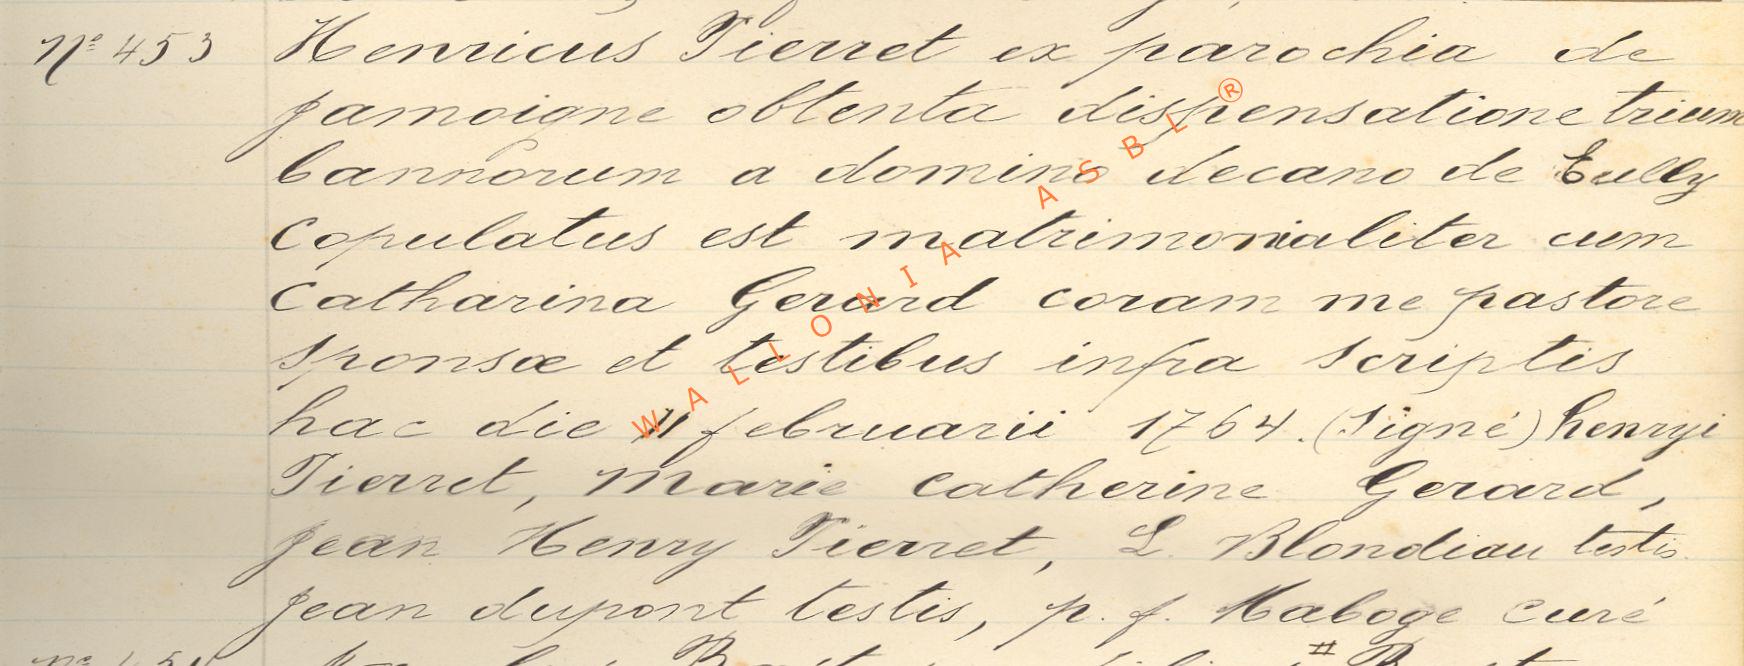 Nº 453 Henricus Pierret ex parochia de
jamoigne obtenta dispensatione trium
bannorum a domino decano de
Copulatus est matrimonialiter cum
Catharina Gerard coram me pastore
Sponsæ et testibus infra Scriptis
hac die 11 februarii 1764. (Signé) henryi
Pierret, Marie Catherine Gerard,
jean Henry Pierret, L. Blondiau testis.
jean dupont testis, p. f. Maboge curé
WALLONIA ASBL ®